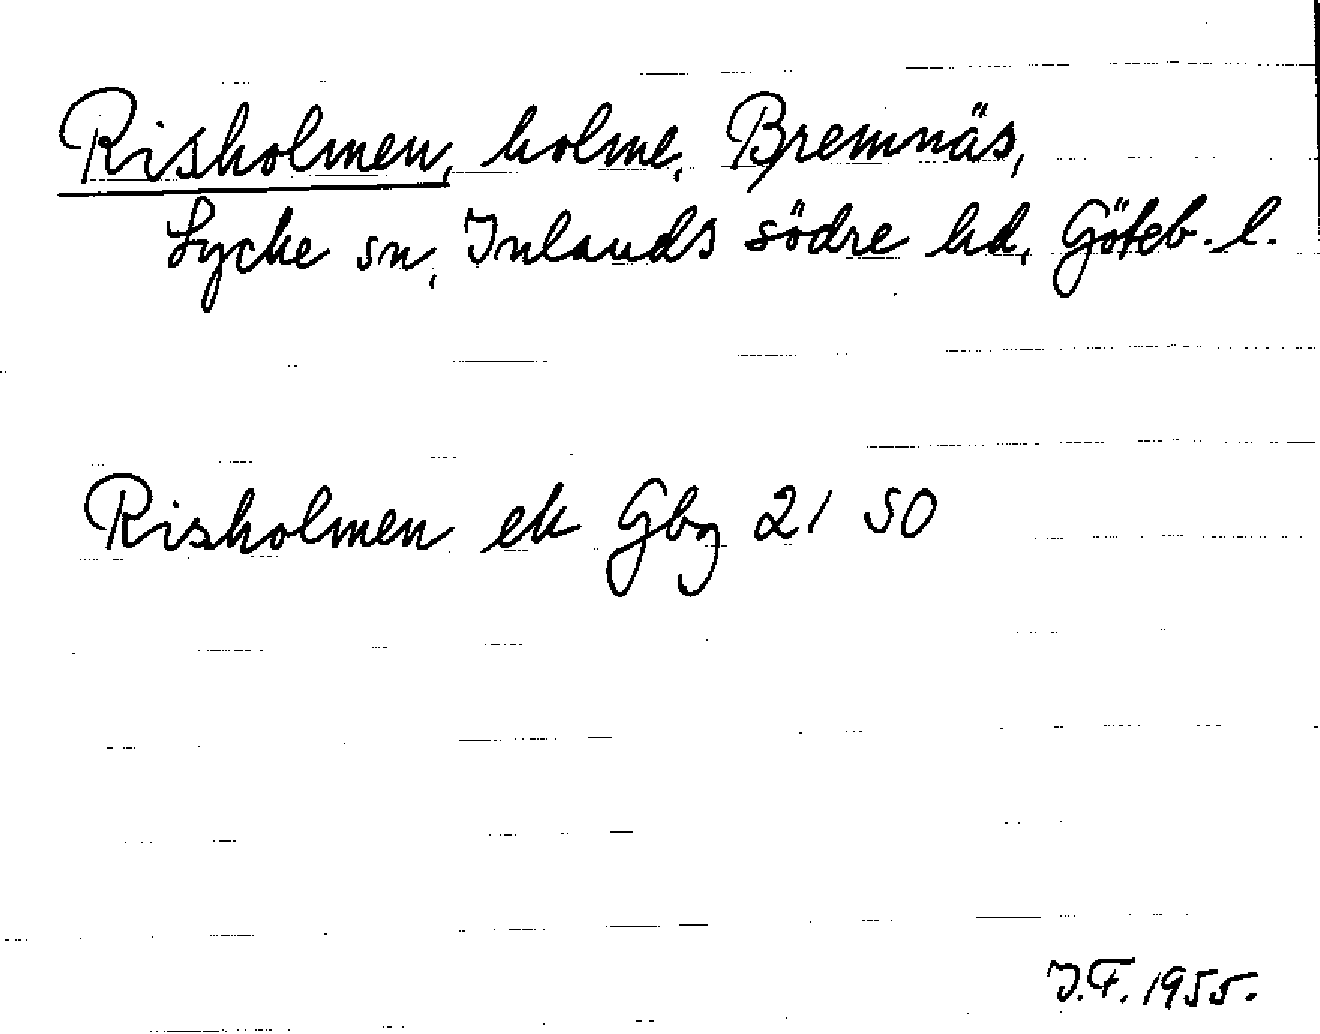 Risholmen, holme, Bremnäs,
Lycke sn, Inlands södre hd, Göteb. l.
Risholmen ek Gbg 21 50
I.F. 1955.